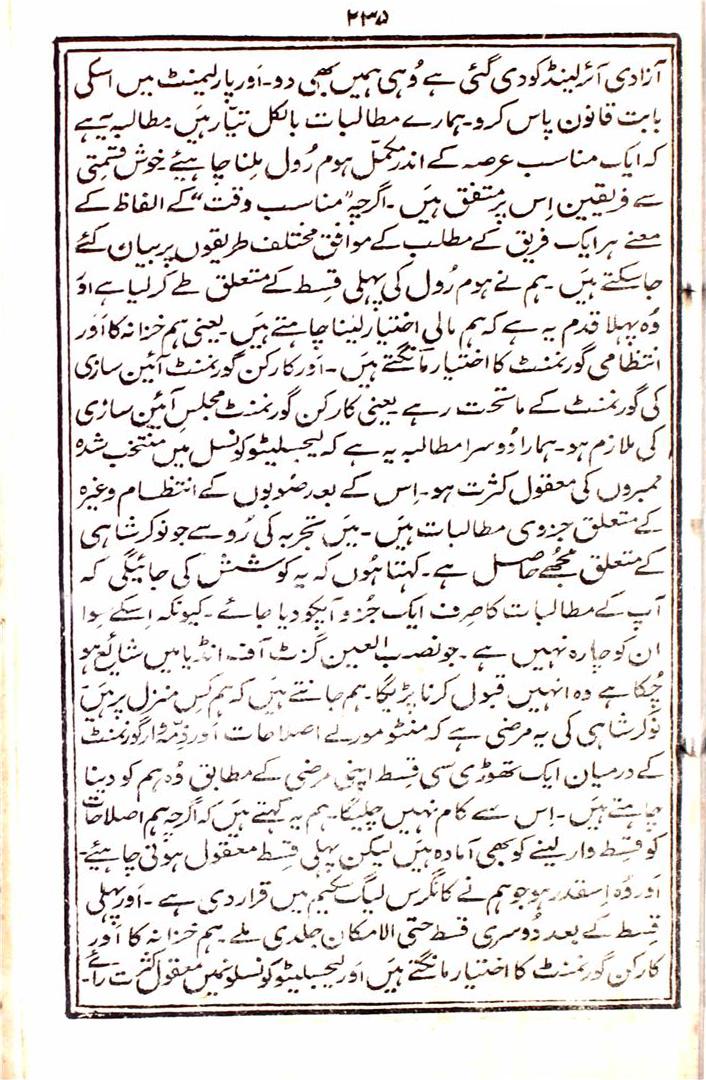 ۲۳۵
آزادی آئرلینڈ کو دی گئی ہے وُہی ہمیں بھی دو۔ اَور پارلیمنٹ میں اسکی
بابت قانون پاس کرو۔ ہمارے مطالبات بالکل تیّار ہَیں مطالبہ یہ ہے
کہ ایک مناسب عرصہ کے اندر مکمّل ہوم رُول مِلنا چاہیئے خوش قسمتی
سے فریقین اِس پر متفق ہیں۔ اگرچہ "مناسب وقت" کے الفاظ کے
معنے ہر ایک فریق کے مطلب کے موافق مختلف طریقوں پر بیان کئے
جاسکتے ہیں۔ ہم نے ہوم رُول کی پہلی قِسط کے متعلق طے کرلیا ہے اَو
وُہ پہلا قدم یہ ہے کہ ہم مالی اختیار لینا چاہتے ہَیں یعنی ہم خزانہ کا اَور
انتظامی گورنمنٹ کا اختیار مانگتے ہیں۔ اَور کارکن گورنمنٹ آئین سازی
کی گورنمنٹ کے ماتحت رہے یعنی کارکن گورنمنٹ مجلس آئین سازی
کی ملازم ہو۔ ہمارا دُوسرا مطالبہ یہ ہے کہ لیجسلیٹو کونسل میں منتخب شدہ
ممبروں کی معقول کثرت ہو۔ اِس کے بعد صُوبوں کے انتظام وغیرہ
کے متعلق جزوی مطالبات ہیں۔ مَیں تجربہ کی رُو سے جو نوکر شاہی
کے متعلق مُجھے حاصل ہے۔ کہتا ہُوں کہ یہ کوشش کی جائیگی کہ
آپ کے مطالبات کا صِرف ایک جُزو آپکو دیا جائے۔ کیونکہ اِسکے سِوا
ان کو چارہ نہیں ہے۔ جو نصب العین گزٹ آف انڈیا میں شائع ہو
چُکا ہے وہ انہیں قبول کرنا پڑیگا۔ ہم جانتے ہیں کہ ہم کِس منزل پر ہَیں
نوکر شاہی کی یہ مرضی ہے کہ منٹو مورلے اصلاحات اَور ذِمّہ وار گورنمنٹ
کے درمیان ایک تھوڑی سی قِسط اپنی مرضی کے مطابق وُہ ہم کو دینا
چاہتے ہیں۔ اِس سے کام نہیں چلیگا۔ ہم یہ کہتے ہیں کہ اگرچہ ہم اصلاحات
کو قِسط وار لینے کو بھی آمادہ ہَیں لیکن پہلی قِسط معقول ہونی چاہیئے۔
اَور وُہ اِسقدر ہو جو ہم نے کانگرس لیگ سکیم میں قرار دی ہے۔ اَور پہلی
قِسط کے بعد دُوسری قسط حتی الامکان جلدی ملے۔ ہم خزانہ کا اَور
کارکن گورنمنٹ کا اختیار مانگتے ہیں اَور لیجسلیٹو کونسلونمیں معقول کثرت رائے۔